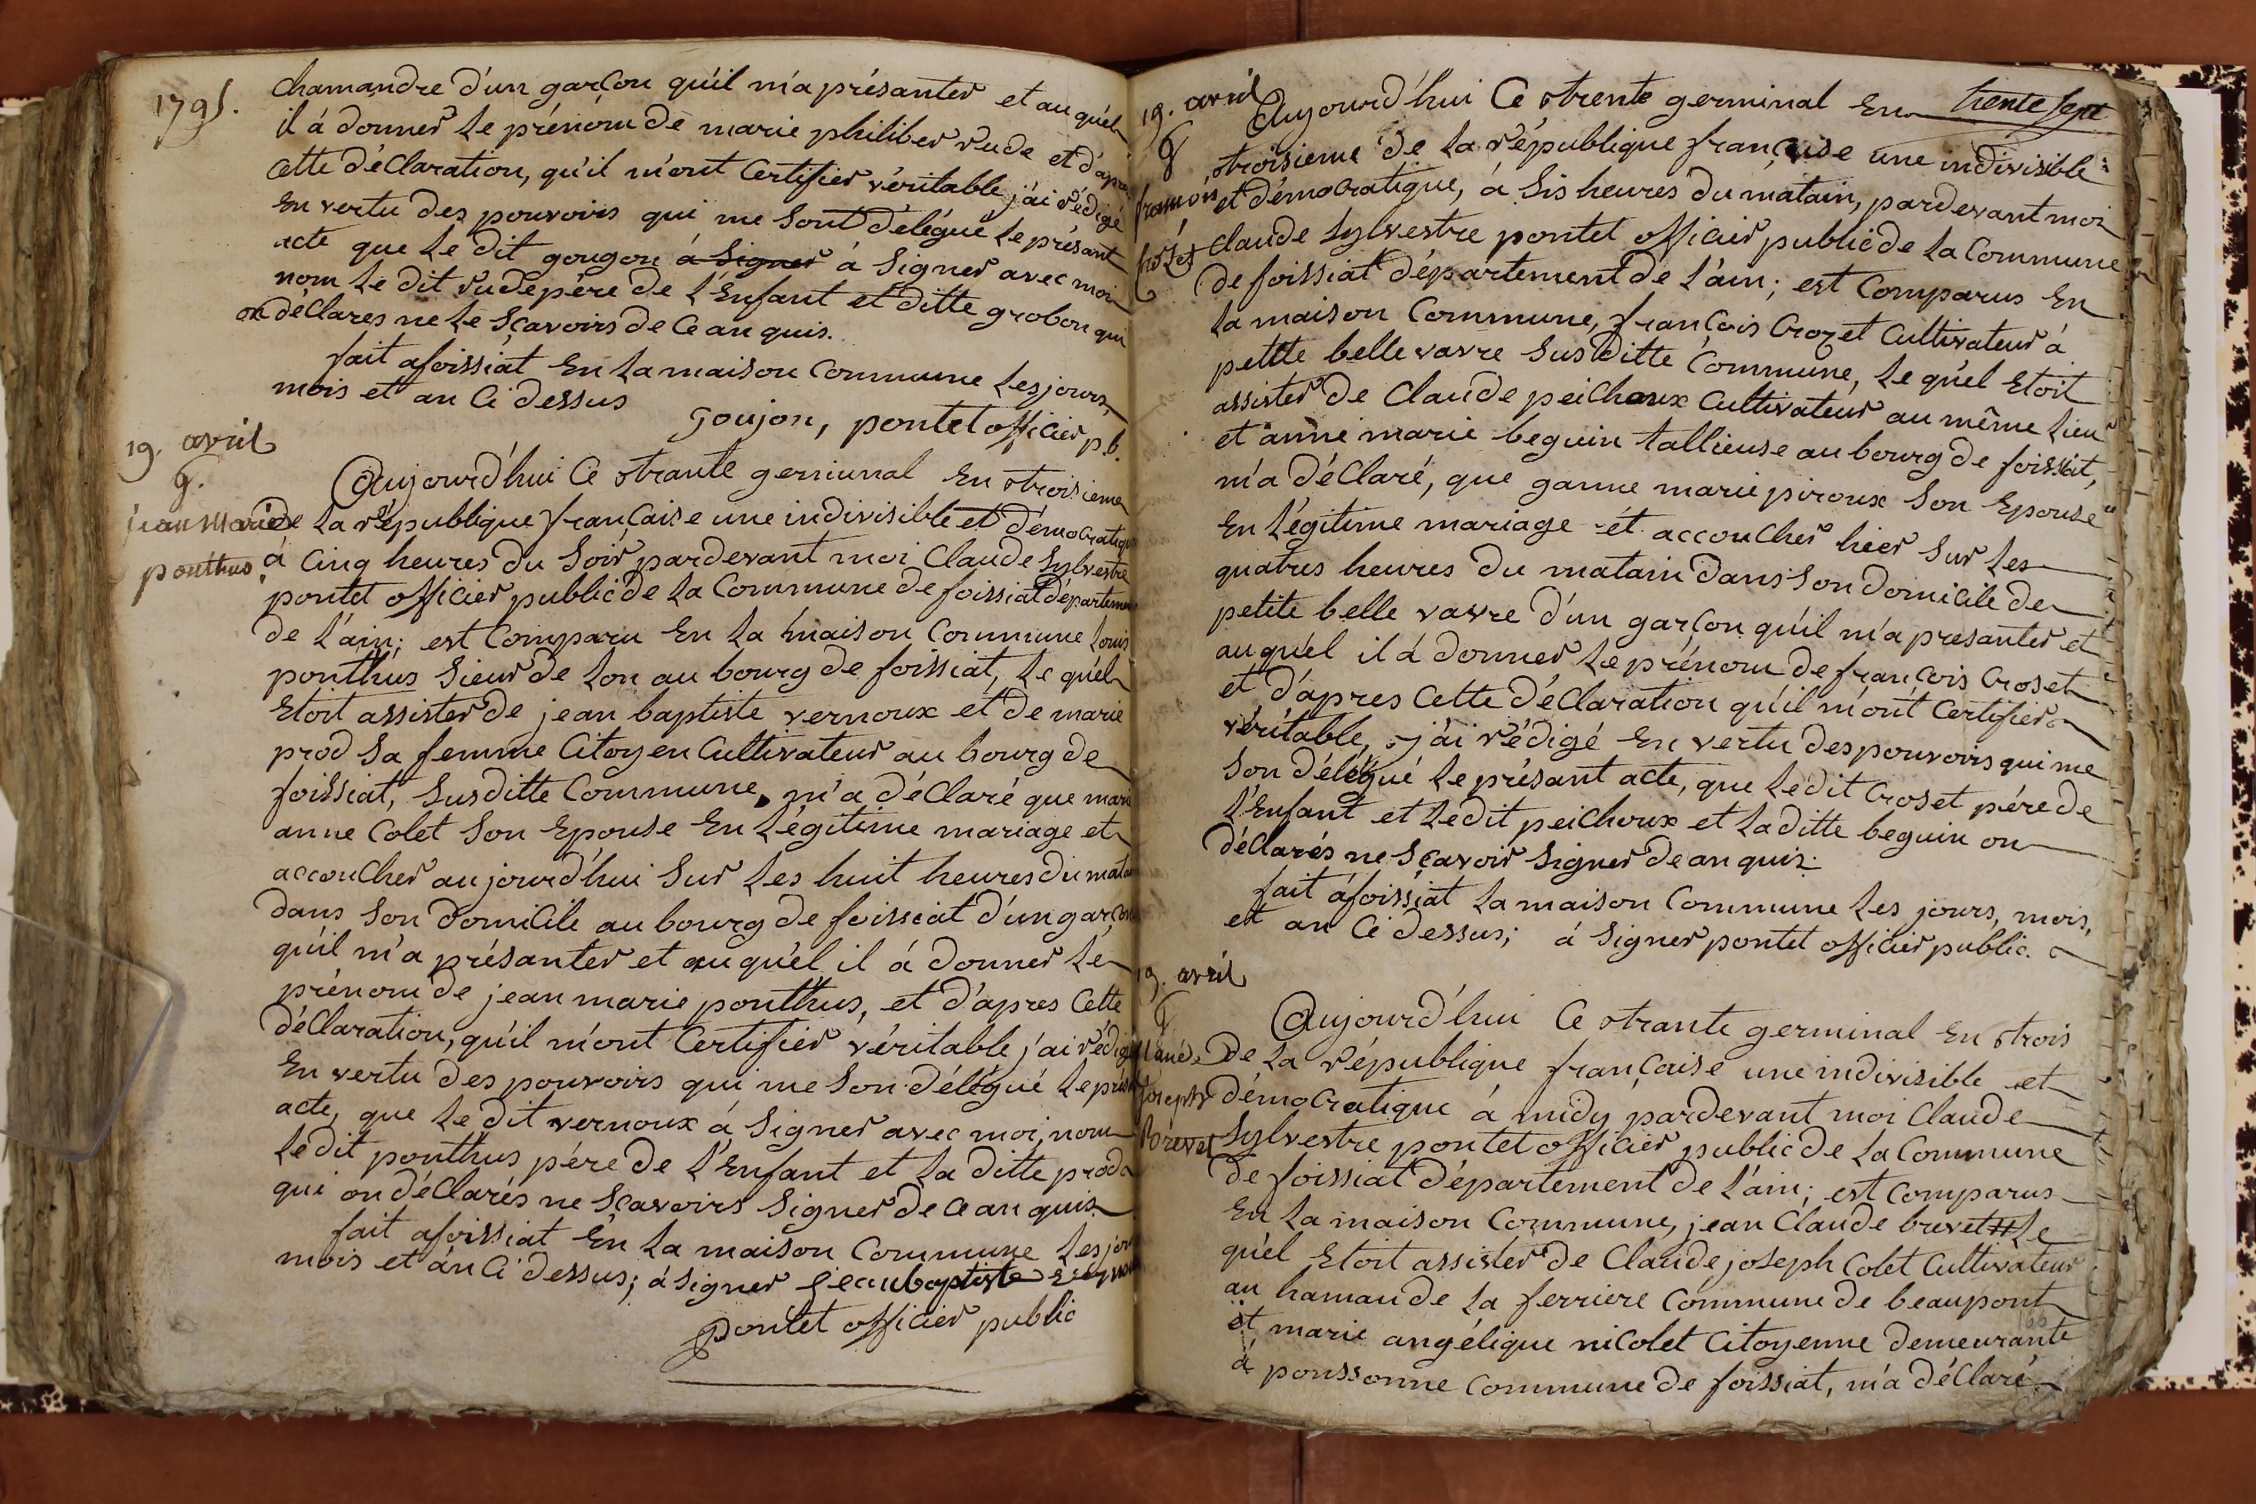 1795.
chamandre d'un garçon qu'il m'a présanter et au quel
il á donner le prénom de marie philiber rude et d'apres
cette déclaration, qu'il m'ont certifier véritable j'ai rédigé
En vertu des pouvoirs qui me sont délégué le présant
acte que le dit gougon á signer á signer avec moi
nom le dit rude pére de l'Enfant et ditte grobon qui
on déclares ne le sçavoirs de ce an quis.
fait afoissiat En la maison commune les jours,
mois et an ci dessus
goujon, pontet officier p.b.
19. avril
g.
jean marie
ponthus
Aujourd'hui ce trante germinal En troisieme
de la république française une indivisible et démocratique
á cinq heures du soir pardevant moi Claude Sylvestre
pontet officier public de la commune de foissiat département
de l'ain; est comparu En la maison commune louis
ponthus sieur de lon au bourg de foissiat, le quel
Etoit assister de jean baptiste vernoux et de marie
prod sa femme citoyen cultivateur au bourg de
foissiat, susditte commune, m'a déclaré que marie
anne colet son Epouse En légitime mariage et
accoucher aujourd'hui sur les huit heures du matain
dans son domicile au bourg de foissiat d'un garçon
qu'il m'a présanter et auquél il á donner le
prénom de jean marie ponthus, et d'apres cette
déclaration, qu'il m'ont certifier véritable j'ai rédigé
En vertu des pouvoirs qui me son délégué le présant
acte, que le dit vernoux á signer avec moi, nom
le dit ponthus pére de l'Enfant et la ditte prod
qui on déclarés ne sçavoirs signer de ce an quis
fait afoissiat En la maison commune les jours
mois et án ci dessus; á signer jeanbaptiste
pontet officier public
trente sept
19. avril
g
françois
crozet
Aujourd'hui ce trente germinal En
troisieme de la république française une indivisible
et démocratique, á sis heures du matain, pardevant moi
Claude Sylvestre pontet officier public de la commune
de foissiat département de l'ain; est comparus En
la maison commune, françois crozet cultivateur á
petite belle vavre susditte commune, le quel Etoit
assister de Claude peichoux cultivateur au même lieu
et anne marie beguin tallieuse au bourg de foissiat,
m'a déclaré, que ganne marie piroux son Epouse
En légitime mariage ét accoucher hier sur les
quatres heures du matain dans son domicile de
petite belle vavre d'un garçon qu'il m'a presanter et
au quel il á donner le prénom de françois croset
et d'apres cette déclaration qu'il m'ont certifier
véritable, j'ai rédigé En vertu des pouvoirs qui me
son délégué le présant acte, que ledit croset pére de
l'Enfant et ledit peichoux et laditte beguin on
déclarés ne sçavoir signer de an quis.
fait áfoissiat la maison commune les jours, mois,
et an ci dessus; á signer pontet officier public.
19. avril
g.
Claude
joseph
Brevet
Aujourd'hui ce trante germinal En trois
De la république française une indivisible et
démocratique á midy pardevant moi Claude
Sylvestre pontet officier public de la commune
de foissiat département de l'ain; est comparus
En la maison commune, jean Claude brevet le
quél Etoit assister de Claude joseph colet cultivateur
au hamau de la ferriere commune de beaupont
et marie angélique nicolet citoyenne demeurante
á poussonne commune de foissiat, m'a déclaré